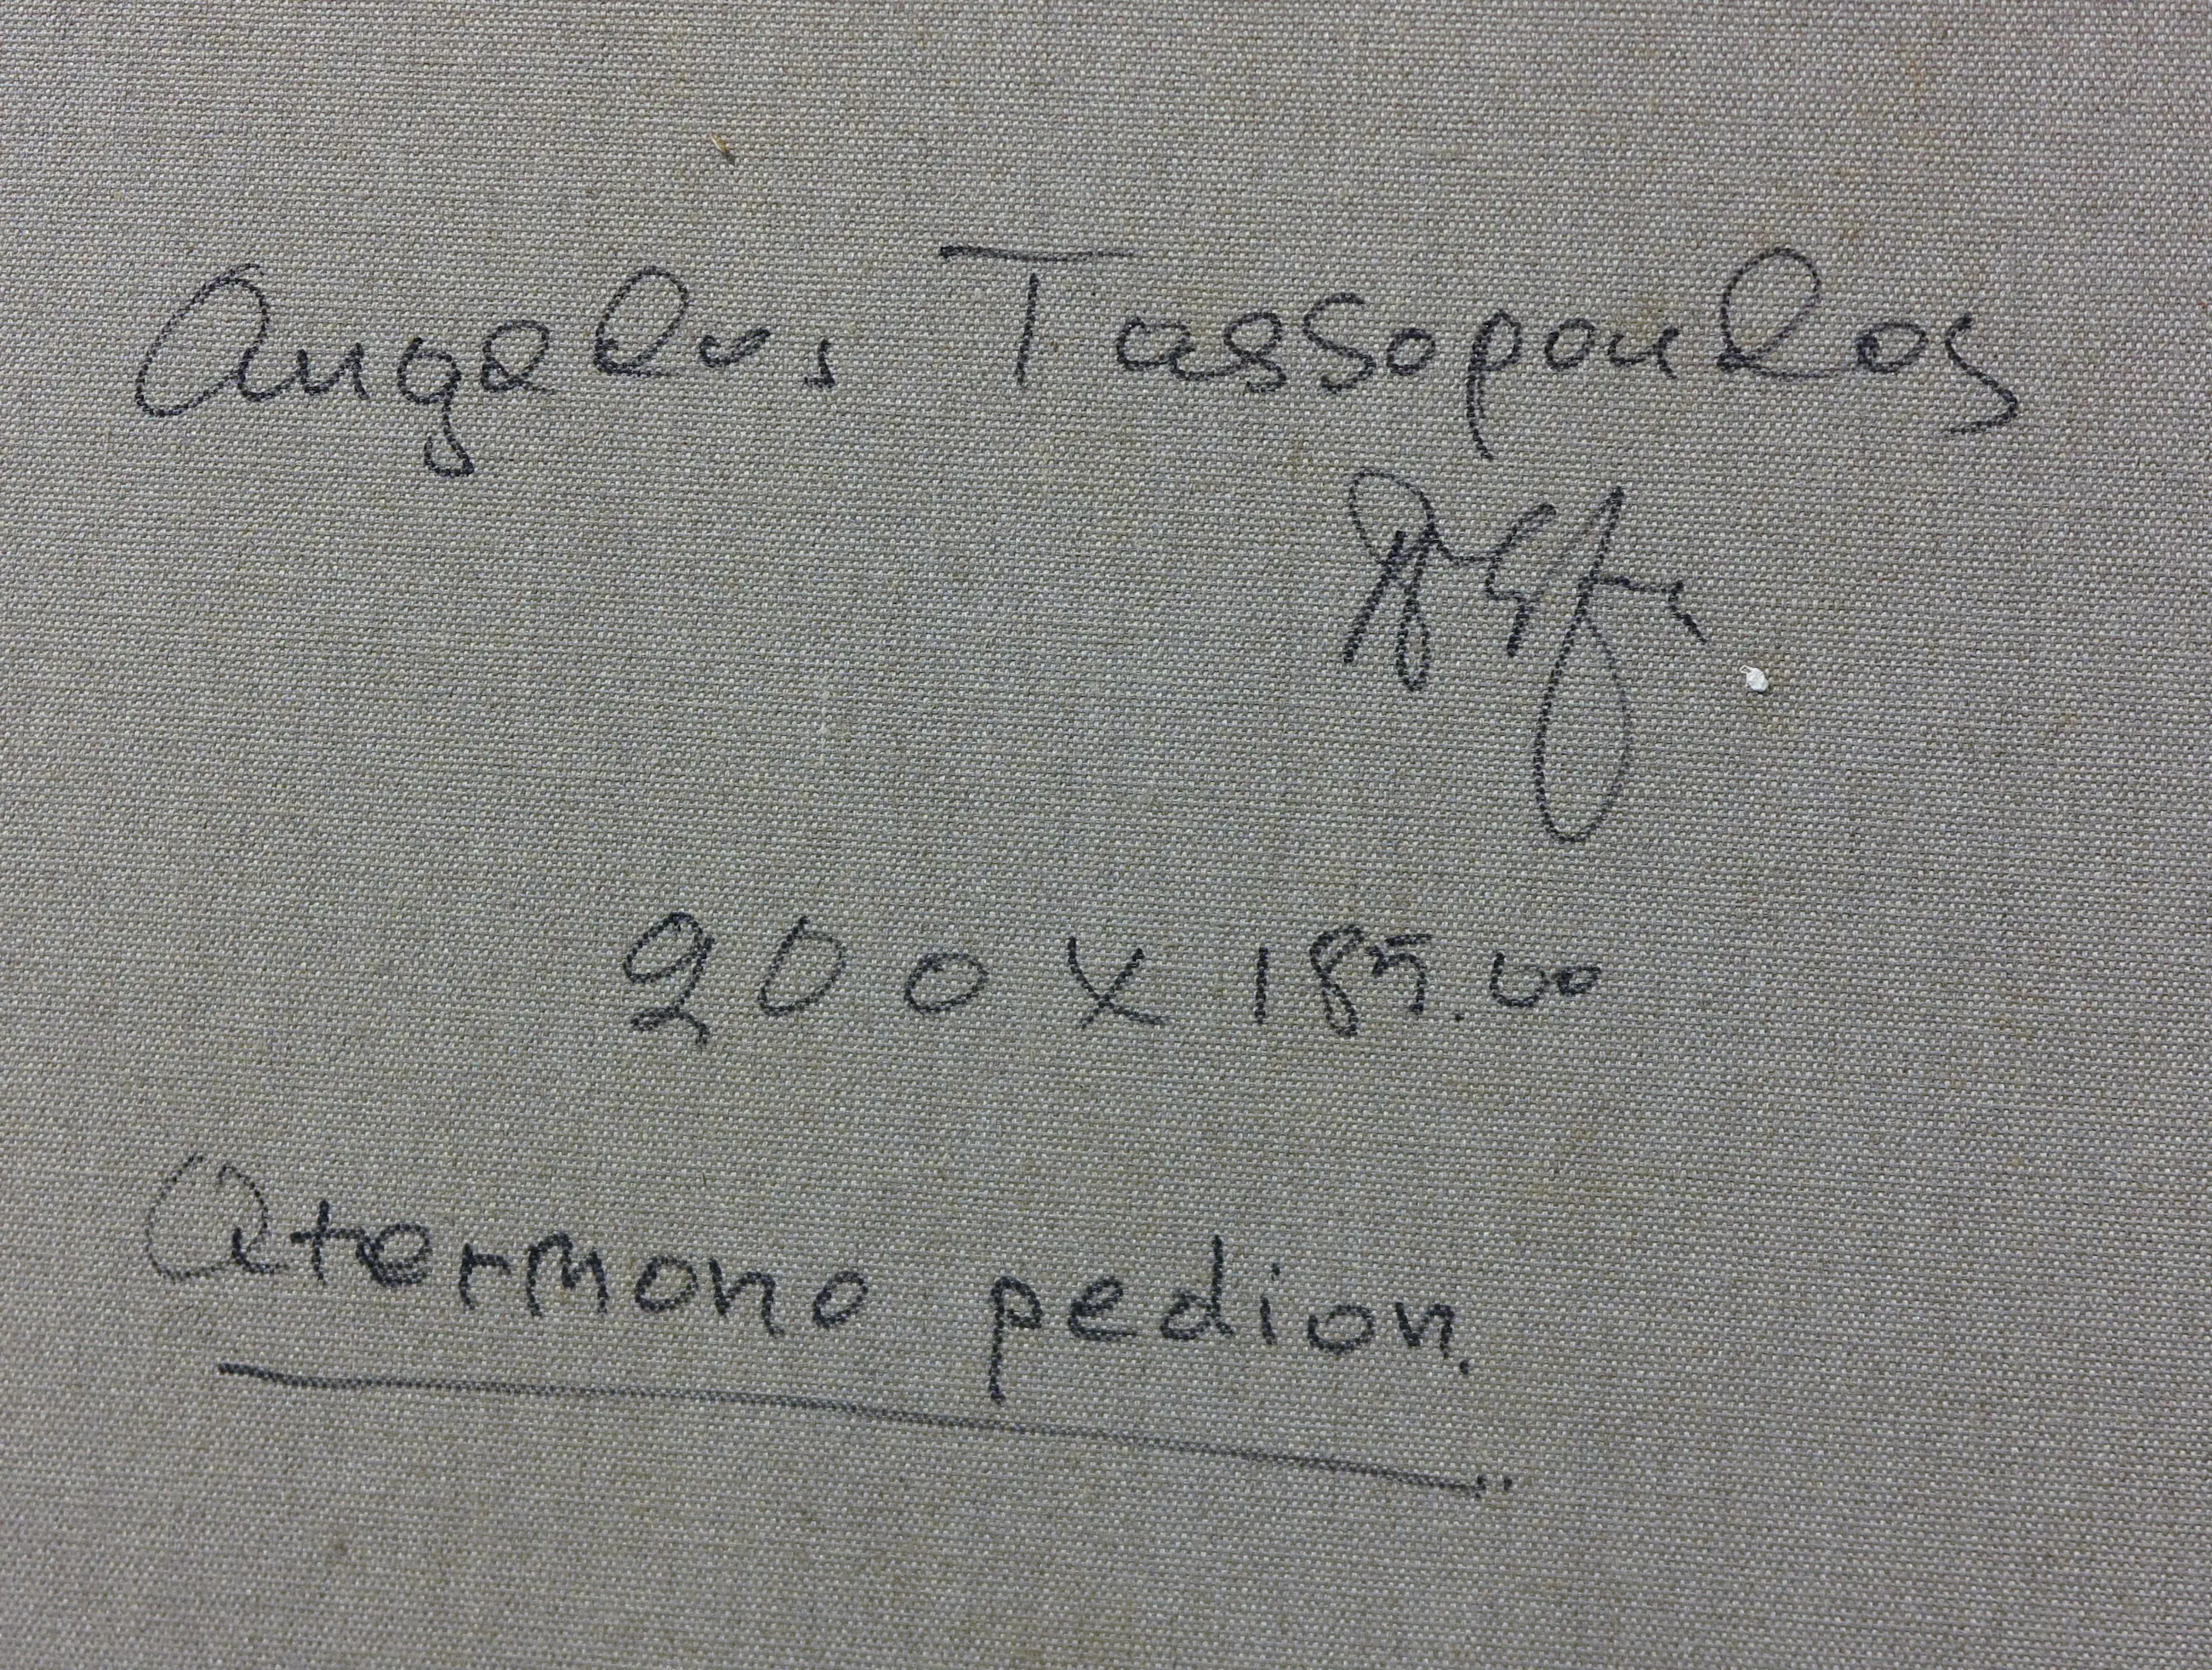 Angelos Tassopoulos
200 x 185.00
Atermono pedion.